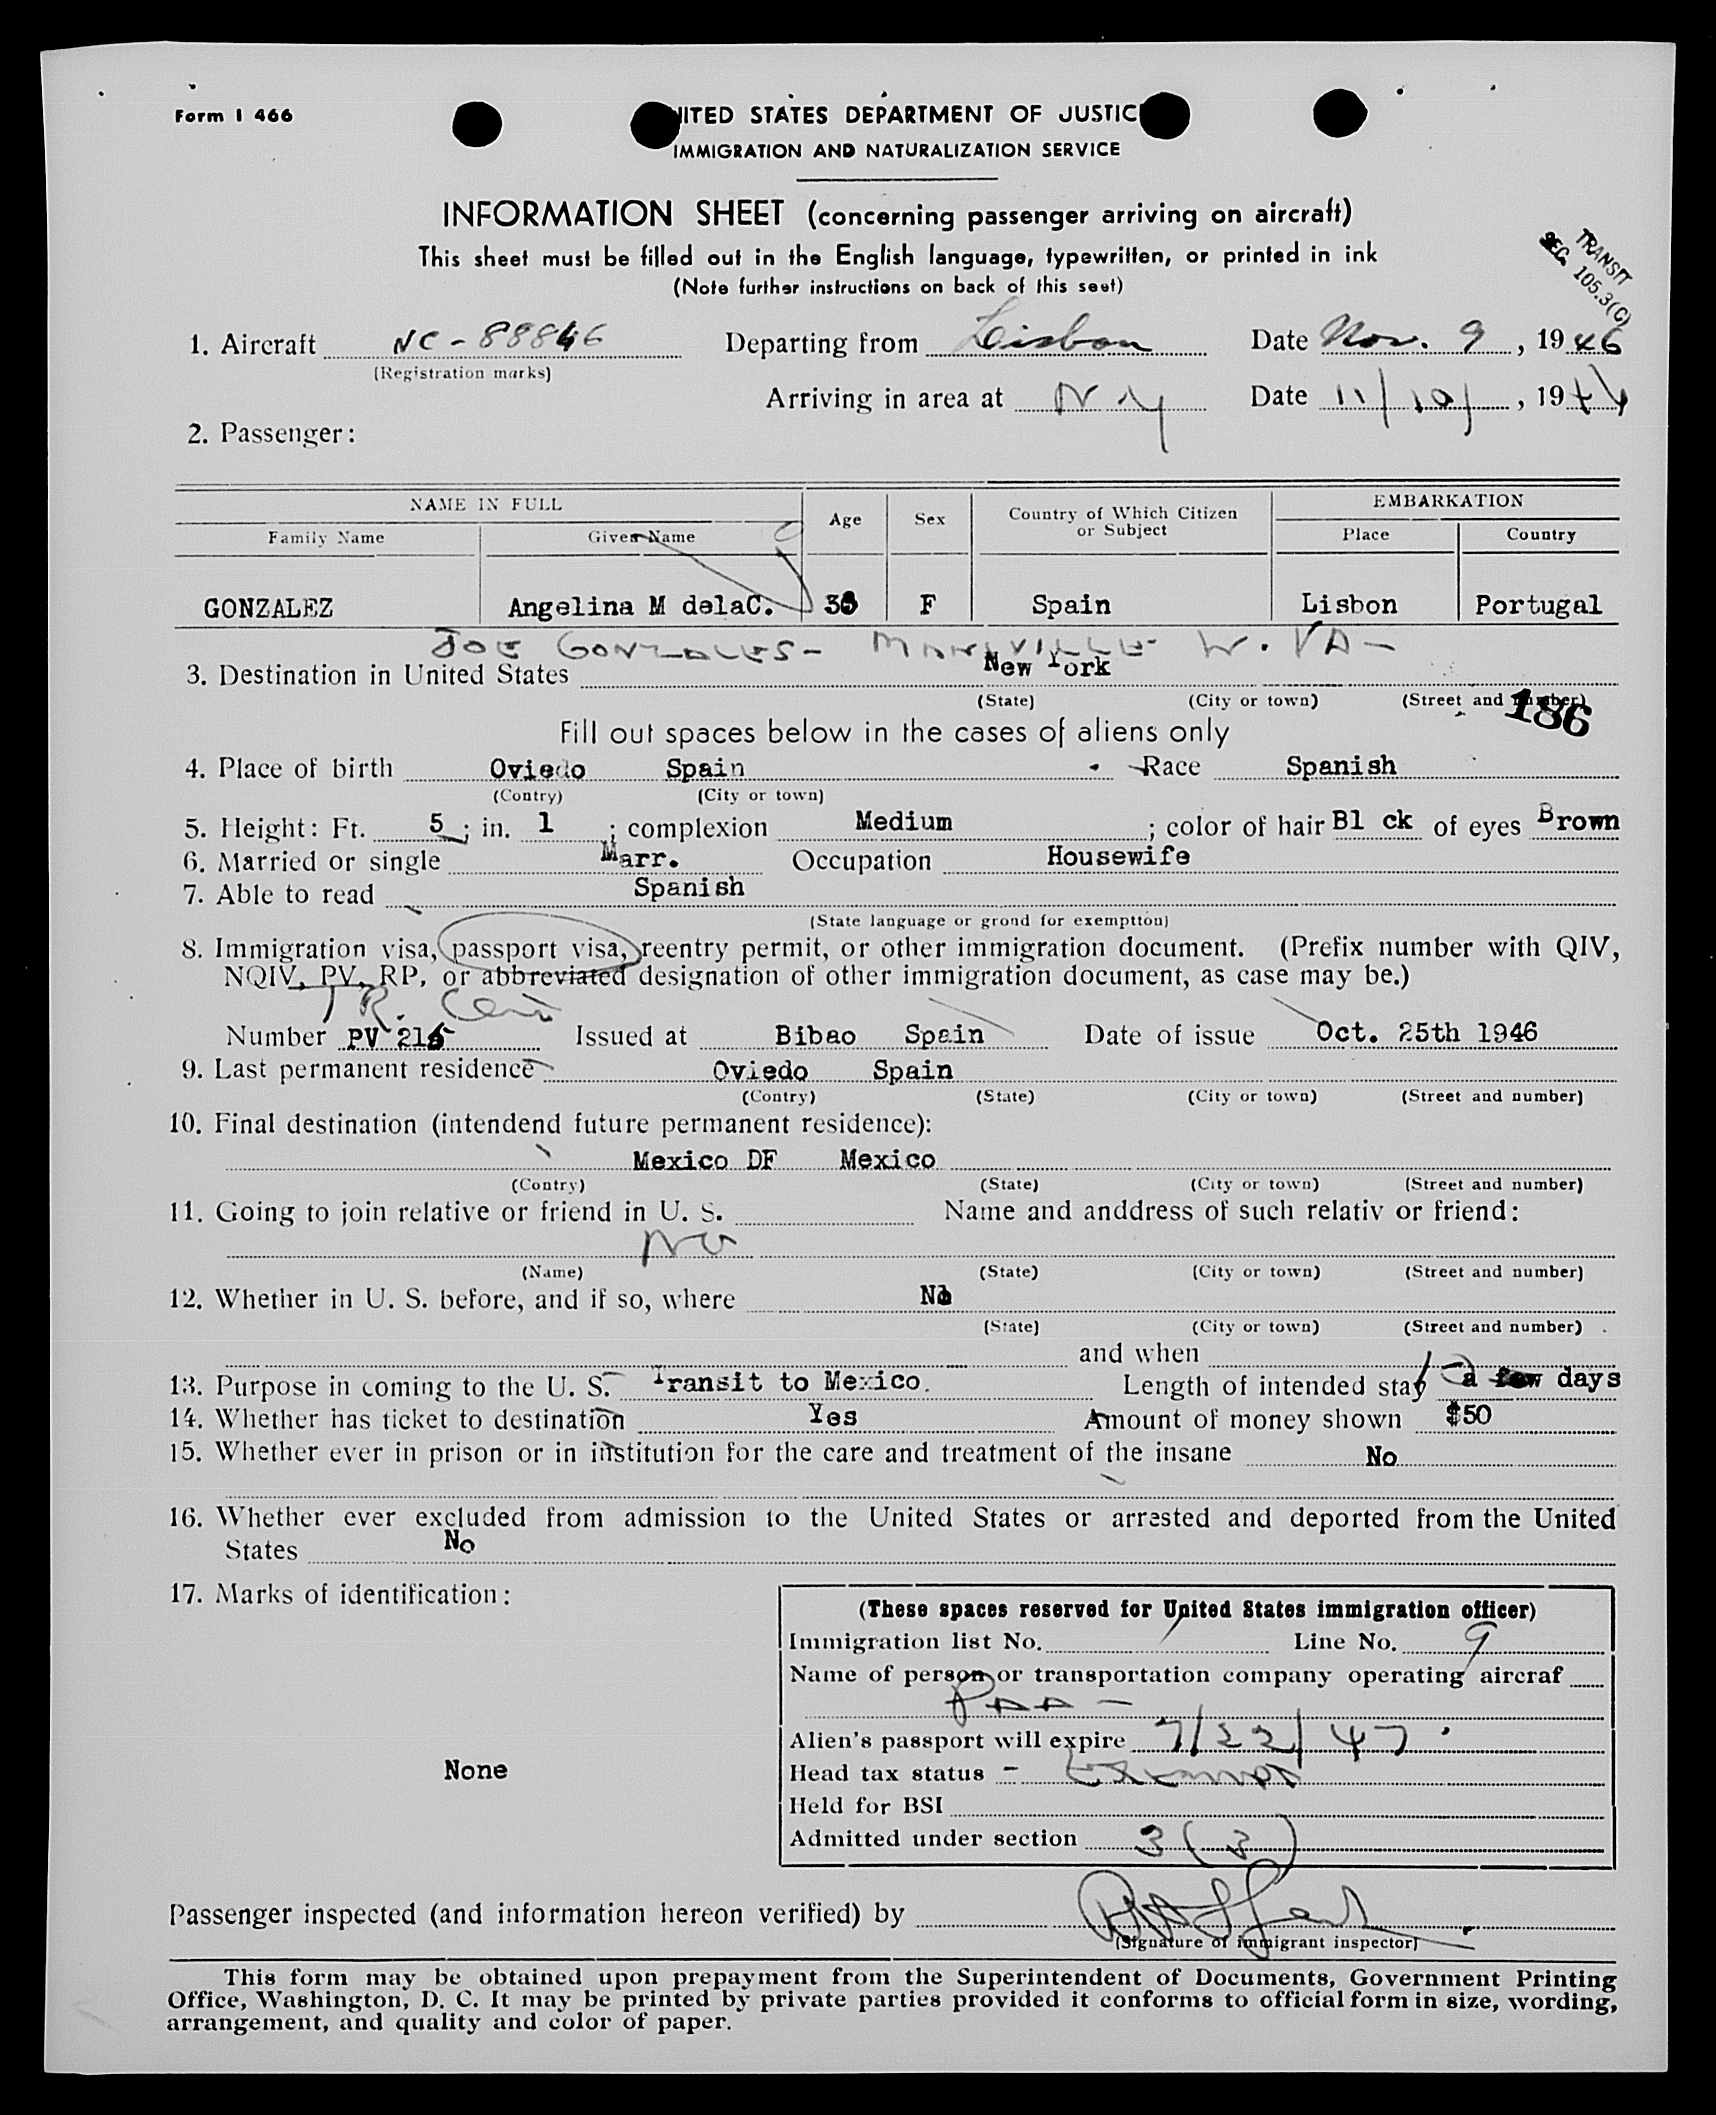 Form I 466
UNITED STATES DEPARTMENT OF JUSTICE
IMMIGRATION AND NATURALIZATION SERVICE
INFORMATION SHEET (concerning passenger arriving on aircraft)
This sheet must be filled out in the English language, typewritten, or printed in ink
(Note further instructions on back of this seet)
TRANSIT
SEC. 105.3(C)
1. Aircraft NC-88846 Departing from Lisbon Date Nov. 9, 1946
(Registration marks)
Arriving in area at NY Date 11/10/, 1946
2. Passenger:
NAME IN FULL Age Sex Country of Which Citizen or Subject EMBARKATION
Family Name Given Name Place Country
GONZALEZ Angelina M delaC. F Spain Lisbon Portugal
JOE GONZALES- W. VA-
3. Destination in United States New York
(State) (City or town) (Street and number)
186
Fill out spaces below in the cases of aliens only
4. Place of birth Oviedo Spain Race Spanish
(Contry) (City or town)
5. Height: Ft. 5; in. 1; complexion Medium; color of hair Bl ck of eyes Brown
6. Married or single Marr. Occupation Housewife
7. Able to read Spanish
(State language or grond for exemption)
8. Immigration visa, passport visa, reentry permit, or other immigration document. (Prefix number with QIV,
NQIV, PV, RP, or abbreviated designation of other immigration document, as case may be.)
TR. Cert
Number PV 215 Issued at Bibao Spain Date of issue Oct. 25th 1946
9. Last permanent residence Oviedo Spain
(Contry) (State) (City or town) (Street and number)
10. Final destination (intendend future permanent residence):
Mexico DF Mexico
(Contry) (State) (City or town) (Street and number)
11. Going to join relative or friend in U. S. Name and anddress of such relativ or friend:
NO
(Name) (State) (City or town) (Street and number)
12. Whether in U. S. before, and if so, where No
(State) (City or town) (Street and number)
and when
13. Purpose in coming to the U. S. Transit to Mexico. Length of intended stay a few days
14. Whether has ticket to destination Yes Amount of money shown $50
15. Whether ever in prison or in institution for the care and treatment of the insane No
16. Whether ever excluded from admission to the United States or arrested and deported from the United
States No
17. Marks of identification:
None
(These spaces reserved for United States immigration officer)
Immigration list No. Line No. 9
Name of person or transportation company operating aircraf
PAA -
Alien's passport will expire 7/22/47
Head tax status -
Held for BSI
Admitted under section 3(3)
Passenger inspected (and information hereon verified) by
(Signature of immigrant inspector)
This form may be obtained upon prepayment from the Superintendent of Documents, Government Printing
Office, Washington, D. C. It may be printed by private parties provided it conforms to official form in size, wording,
arrangement, and quality and color of paper.